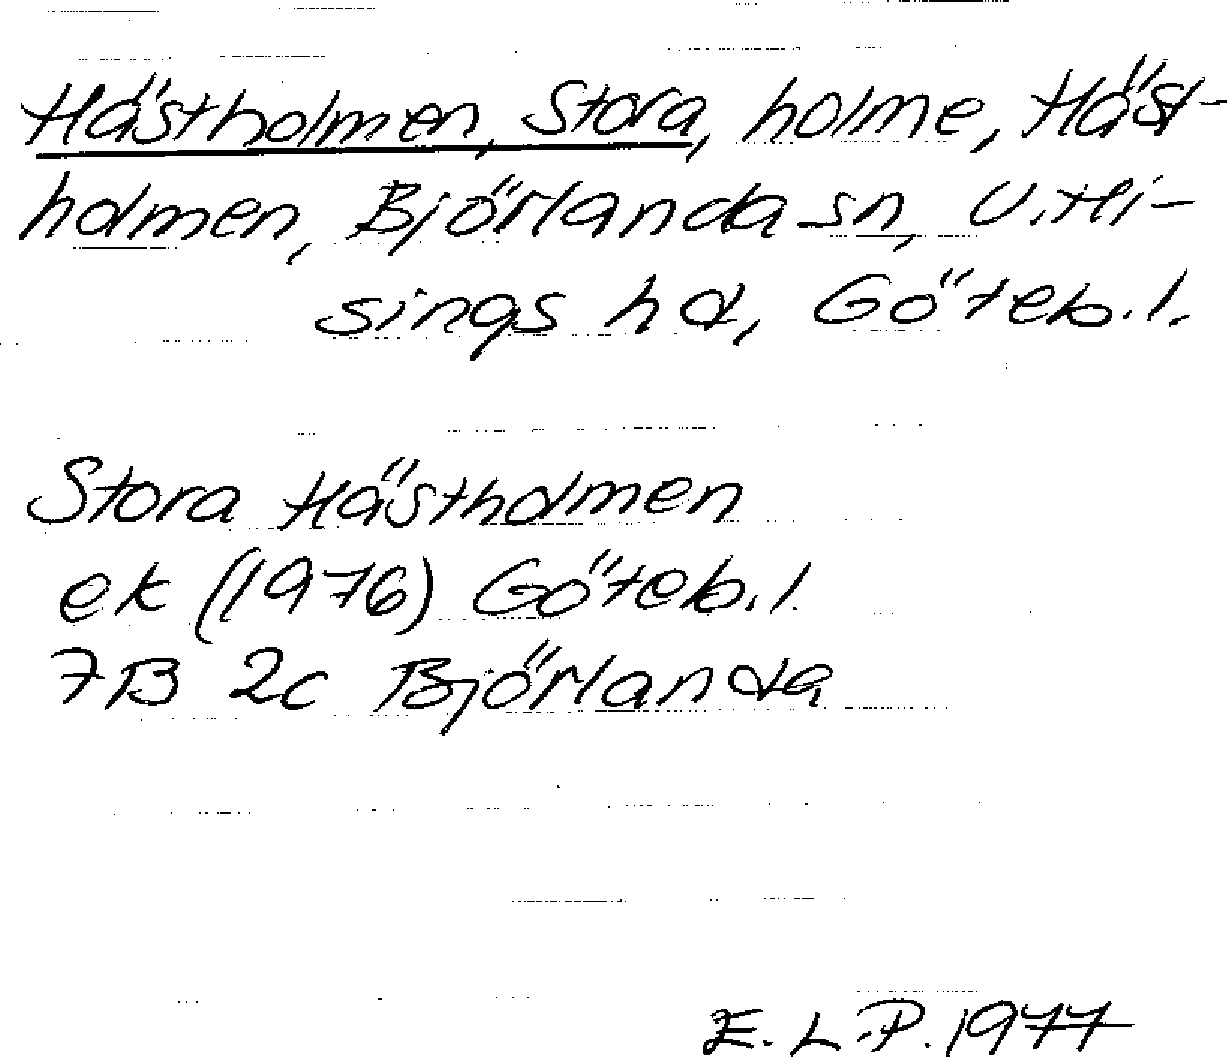 Hästholmen, Stora, holme, Häst-
holmen, Björlanda sn, V. Hi-
sings hd, Göteb. l.
Stora Hästholmen
ek (1976) Göteb. l.
7B 2c Björlanda
E. L-P. 1977